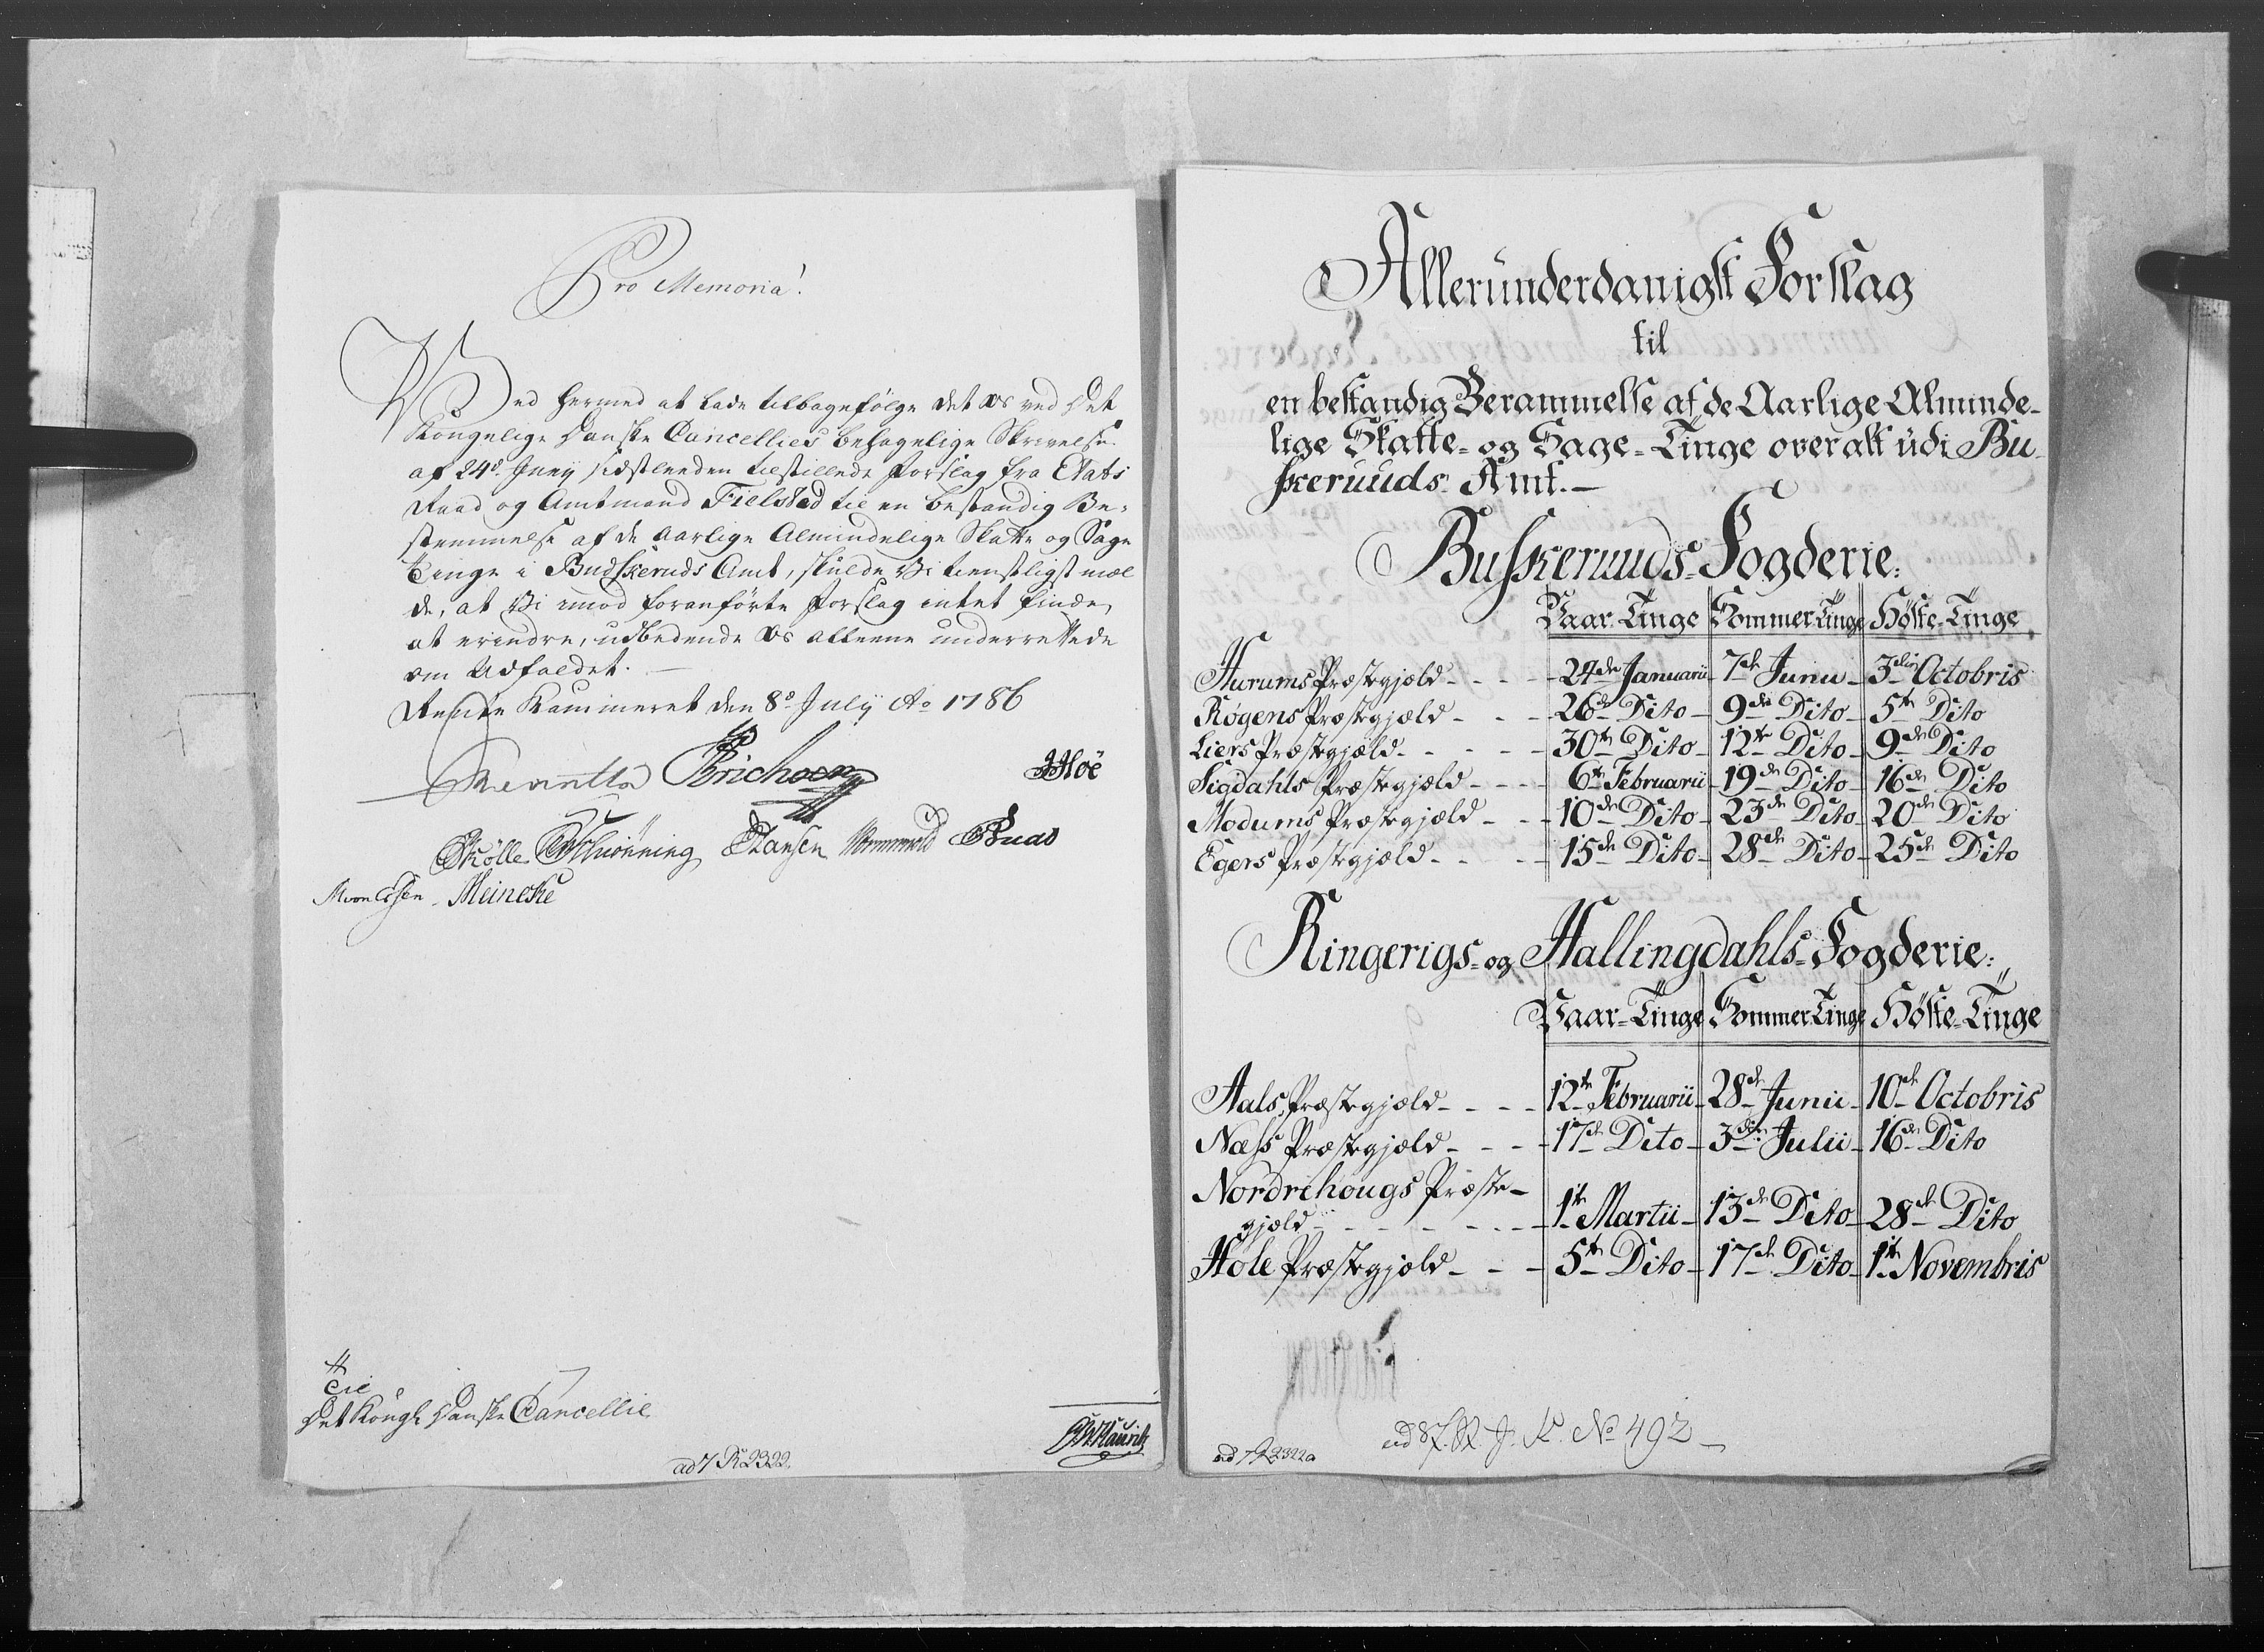 Pro Memoria!
Ved hermed at lade tilbagefølge det os ved Det
Kongelige Danske Cancellies behagelige Skrivelse
af 24de Junij sidstleeden tilstillede Forslag fra Etats
Raad og Amtmand Fielsted til en bestandig Be-
stemmelse af de aarlige Almindelige Skatte og Sage
Tinge i Budskeruds Amt, skulde Vi tienstligst mel
de, at Vi imod foranførte Forslag intet finde
at erindre, udbedende os alleene underrettede
om Udfaldet. —
Rente Kammeret den 8de Julij Ao 1786
Erichsen JHoë
Skölle Schiønning Hansen Wormwold
Meincke
Til
Det Kongl. Danske Cancellie
ad 7 R 2322.
Allerunderdanigst Forslag
til
en bestandig Berammelse af de Aarlige Alminde-
lige Skatte- og Sage-Tinge overalt udi Bu-
skeruuds Amt. —
Buskeruuds-Fogderie:
Vaar-Tinge Sommer Tinge Høste-Tinge
Hurums Præstegjæld - - - - 24de Januarii 7de Junii 3die Octobris
Røgens Præstegjæld - - - 26de Dito 9de Dito 5te Dito
Liers Præstegjæld - - - - - 30te Dito 12te Dito 9de Dito
Sigdahls Præstegjæld - - - - 6te Februarii 19de Dito 16de Dito
Modums Præstegjæld - - - 10de Dito 23de Dito 20de Dito
Egers Præstegjæld - - - - 15de Dito 28de Dito 25de Dito
Ringerigs- og Hallingdahls-Fogderie:
Vaar-Tinge Sommer Tinge Høste-Tinge
Aals Præstegjæld - - - - 12te Februarii 28de Junii 10de Octobris
Næss Præstegjæld - - - 17de Dito 3die Julii 16de Dito
Nordrehougs Præste-
gjæld - - - - - - - 1te Martii 13de Dito 28de Dito
Hole Præstegjæld - - - 5te Dito 17de Dito 1te Novembris
ad 7 R 2322a
No 492